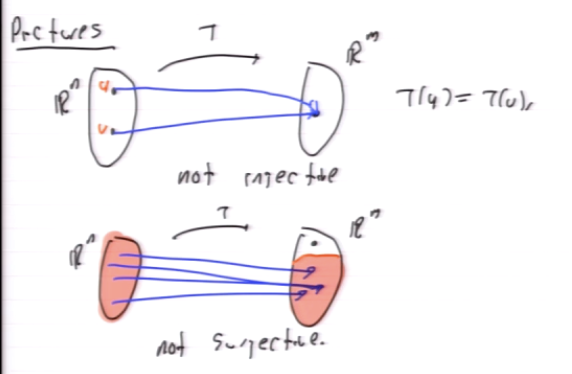 Pictures
T
ℝⁿ
ℝᵐ
u
v
T(u) = T(v),
not injective
T
ℝⁿ
ℝᵐ
not surjective.